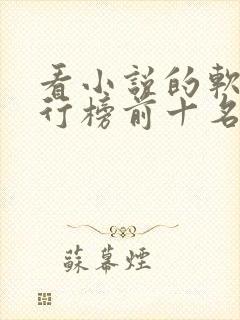 看小説的軟
行榜前十名
蘇幕煙